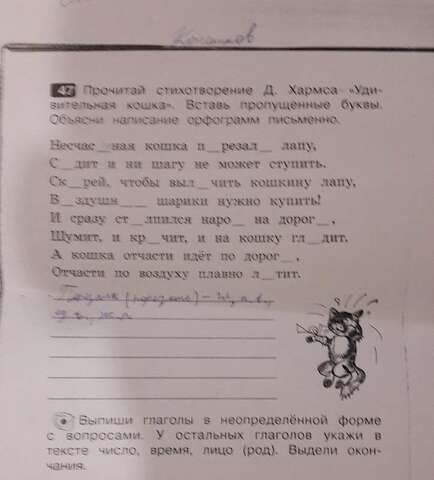 47 Прочитай стихотворение Д. Хармса «Уди-
вительная кошка». Вставь пропущенные буквы.
Объясни написание орфограмм письменно.
Несчас__ная кошка п__резал__ лапу,
С__дит и ни шагу не может ступить.
Ск__рей, чтобы выл__чить кошкину лапу,
В__здушн____ шарики нужно купить!
И сразу ст__лпился наро__ на дорог__,
Шумит, и кр__чит, и на кошку гл__дит.
А кошка отчасти идёт по дорог__,
Отчасти по воздуху плавно л__тит.
Выпиши глаголы в неопределённой форме
с вопросами. У остальных глаголов укажи в
тексте число, время, лицо (род). Выдели окон-
чания.